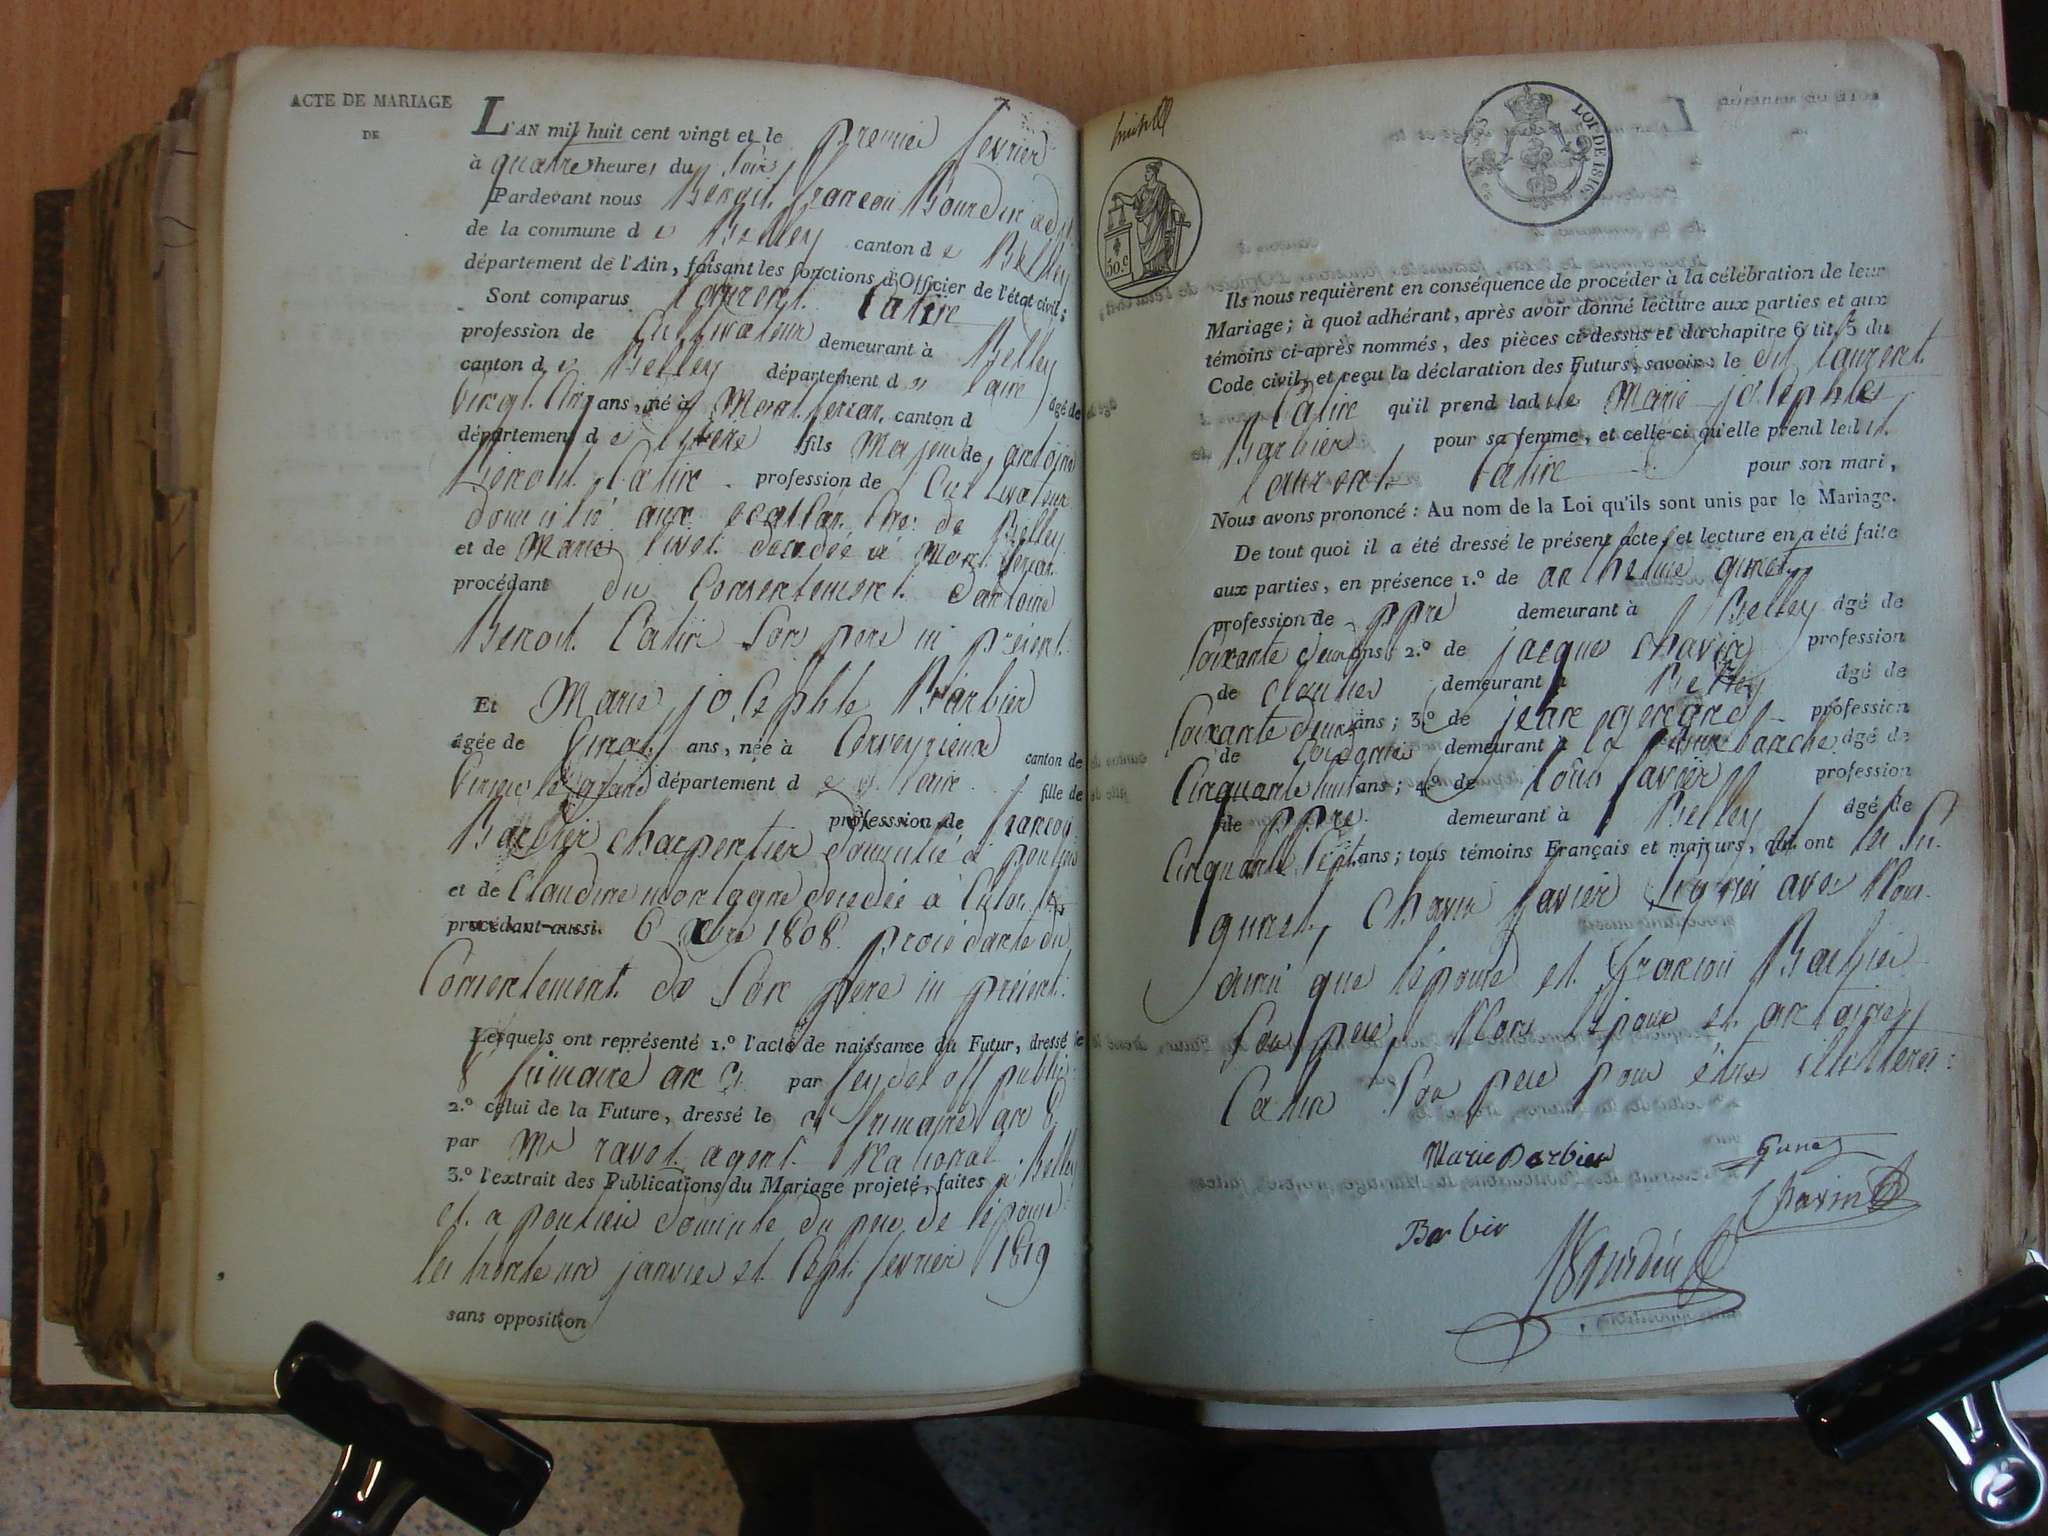 ACTE DE MARIAGE
DE
L'AN mil huit cent vingt et le premier fevrier
à quatre heures du soir
Pardevant nous Benoit françois Bourdin adjt
de la commune d e Belley canton d e Belley
département de l'Ain, faisant les fonctions d'Officier de l'état civil;
Sont comparus laurent Catin
profession de Cultivateur demeurant à Belley
canton d e Belley département d e lain âgé de
vingt cinq ans, né à Mont ferran canton d
département d e lisere fils Majeur de antoine
Benoit Catin profession de Cultivateur
domicilié aux de Belley
et de Marie decedée à Mont ferran
procédant du Consentement dantoine
Benoit Catin Son pere ici présent
Et Marie josephte Barbier
âgée de vingt ans, née à Cerveyrieux canton de
virieu le grand département d e lain fille de
profession de françois
Barbier charpentier domicilié à pontieu
et de Claudine montagne decedée à Culoz le
procédant aussi 6 Xbre 1808 procédante du
Consentement de Son père ici présent
Lesquels ont représenté 1.º l'acte de naissance du Futur, dressé le
8 frimaire an 3 par off public
2.º celui de la Future, dressé le frimaire an 8
par Mr ravet agent National
3.º l'extrait des Publications du Mariage projeté, faites à Belley
et a pontieu domicile du pere de lépouse
les trente un janvier et Sept fevrier 1819
sans opposition
LOI DE 1816
50.c
Ils nous requièrent en conséquence de procéder à la célébration de leur
Mariage; à quoi adhérant, après avoir donné lecture aux parties et aux
témoins ci-après nommés, des pièces ci-dessus et du chapitre 6 tit. 5 du
Code civil, et reçu la déclaration des Futurs, savoir: le dit laurent
Catin qu'il prend lad ite Marie josephte
Barbier pour sa femme, et celle-ci qu'elle prend led it
laurent Catin pour son mari,
Nous avons prononcé: Au nom de la Loi qu'ils sont unis par le Mariage.
De tout quoi il a été dressé le présent acte, et lecture en a été faite
aux parties, en présence 1.º de anthelme gunet
profession de ppre demeurant à Belley âgé de
soixante deux ans; 2.º de jacques chavin profession
de cloutier demeurant à Belley âgé de
soixante deux ans; 3.º de jean profession
de demeurant à âgé de
Cinquante huit ans; 4.º de louis savier profession
de ppre demeurant à Belley âgé de
Cinquante Sept ans; tous témoins Français et majeurs, qui ont les Srs
gunet, chavin savier signés avec Nous
ainsi que lépouse et françois Barbier
Son pere, Non lépoux et antoine
Catin Son pere pour être illetteres
Marie Barbier
Gunet
Chavin
Barbier
Bourdin